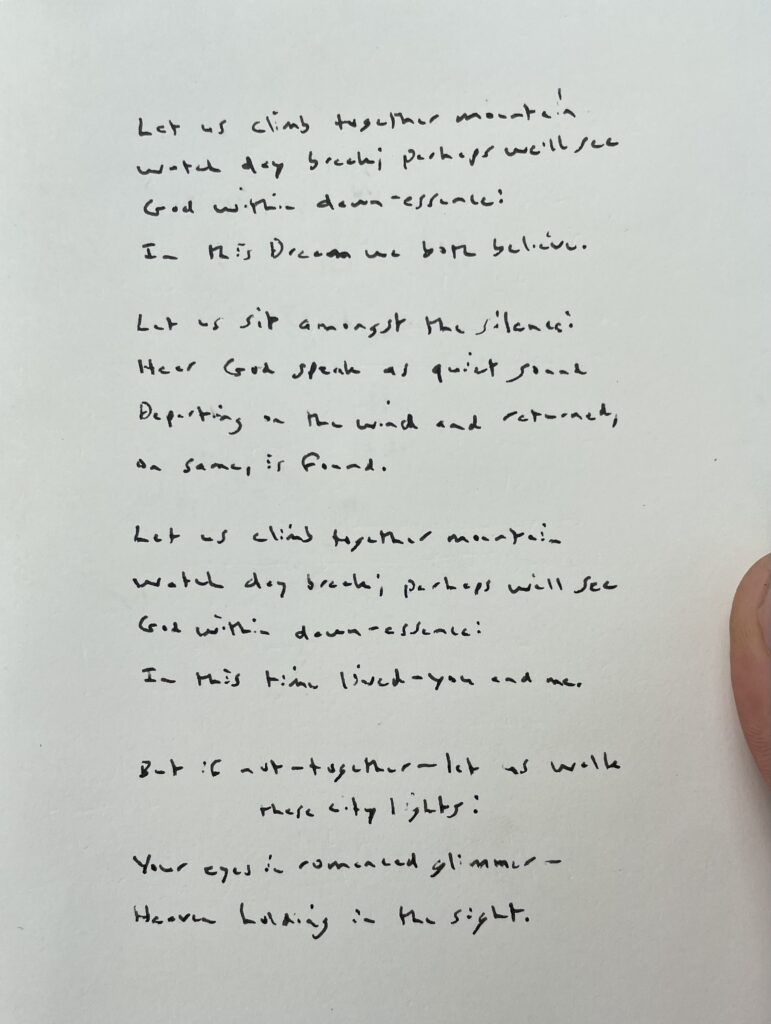 Let us climb together mountain
watch day break; perhaps we'll see
God within dawn-essence:
In this Dream we both believe.
Let us sit amongst the silence:
Hear God speak as quiet sound
Departing on the wind and returned,
on same, is found.
Let us climb together mountain
watch day break; perhaps we'll see
God within dawn-essence:
In this time lived-you and me.
But if not-together-let us walk
these city lights:
Your eyes in romanced glimmer-
Heaven holding in the sight.